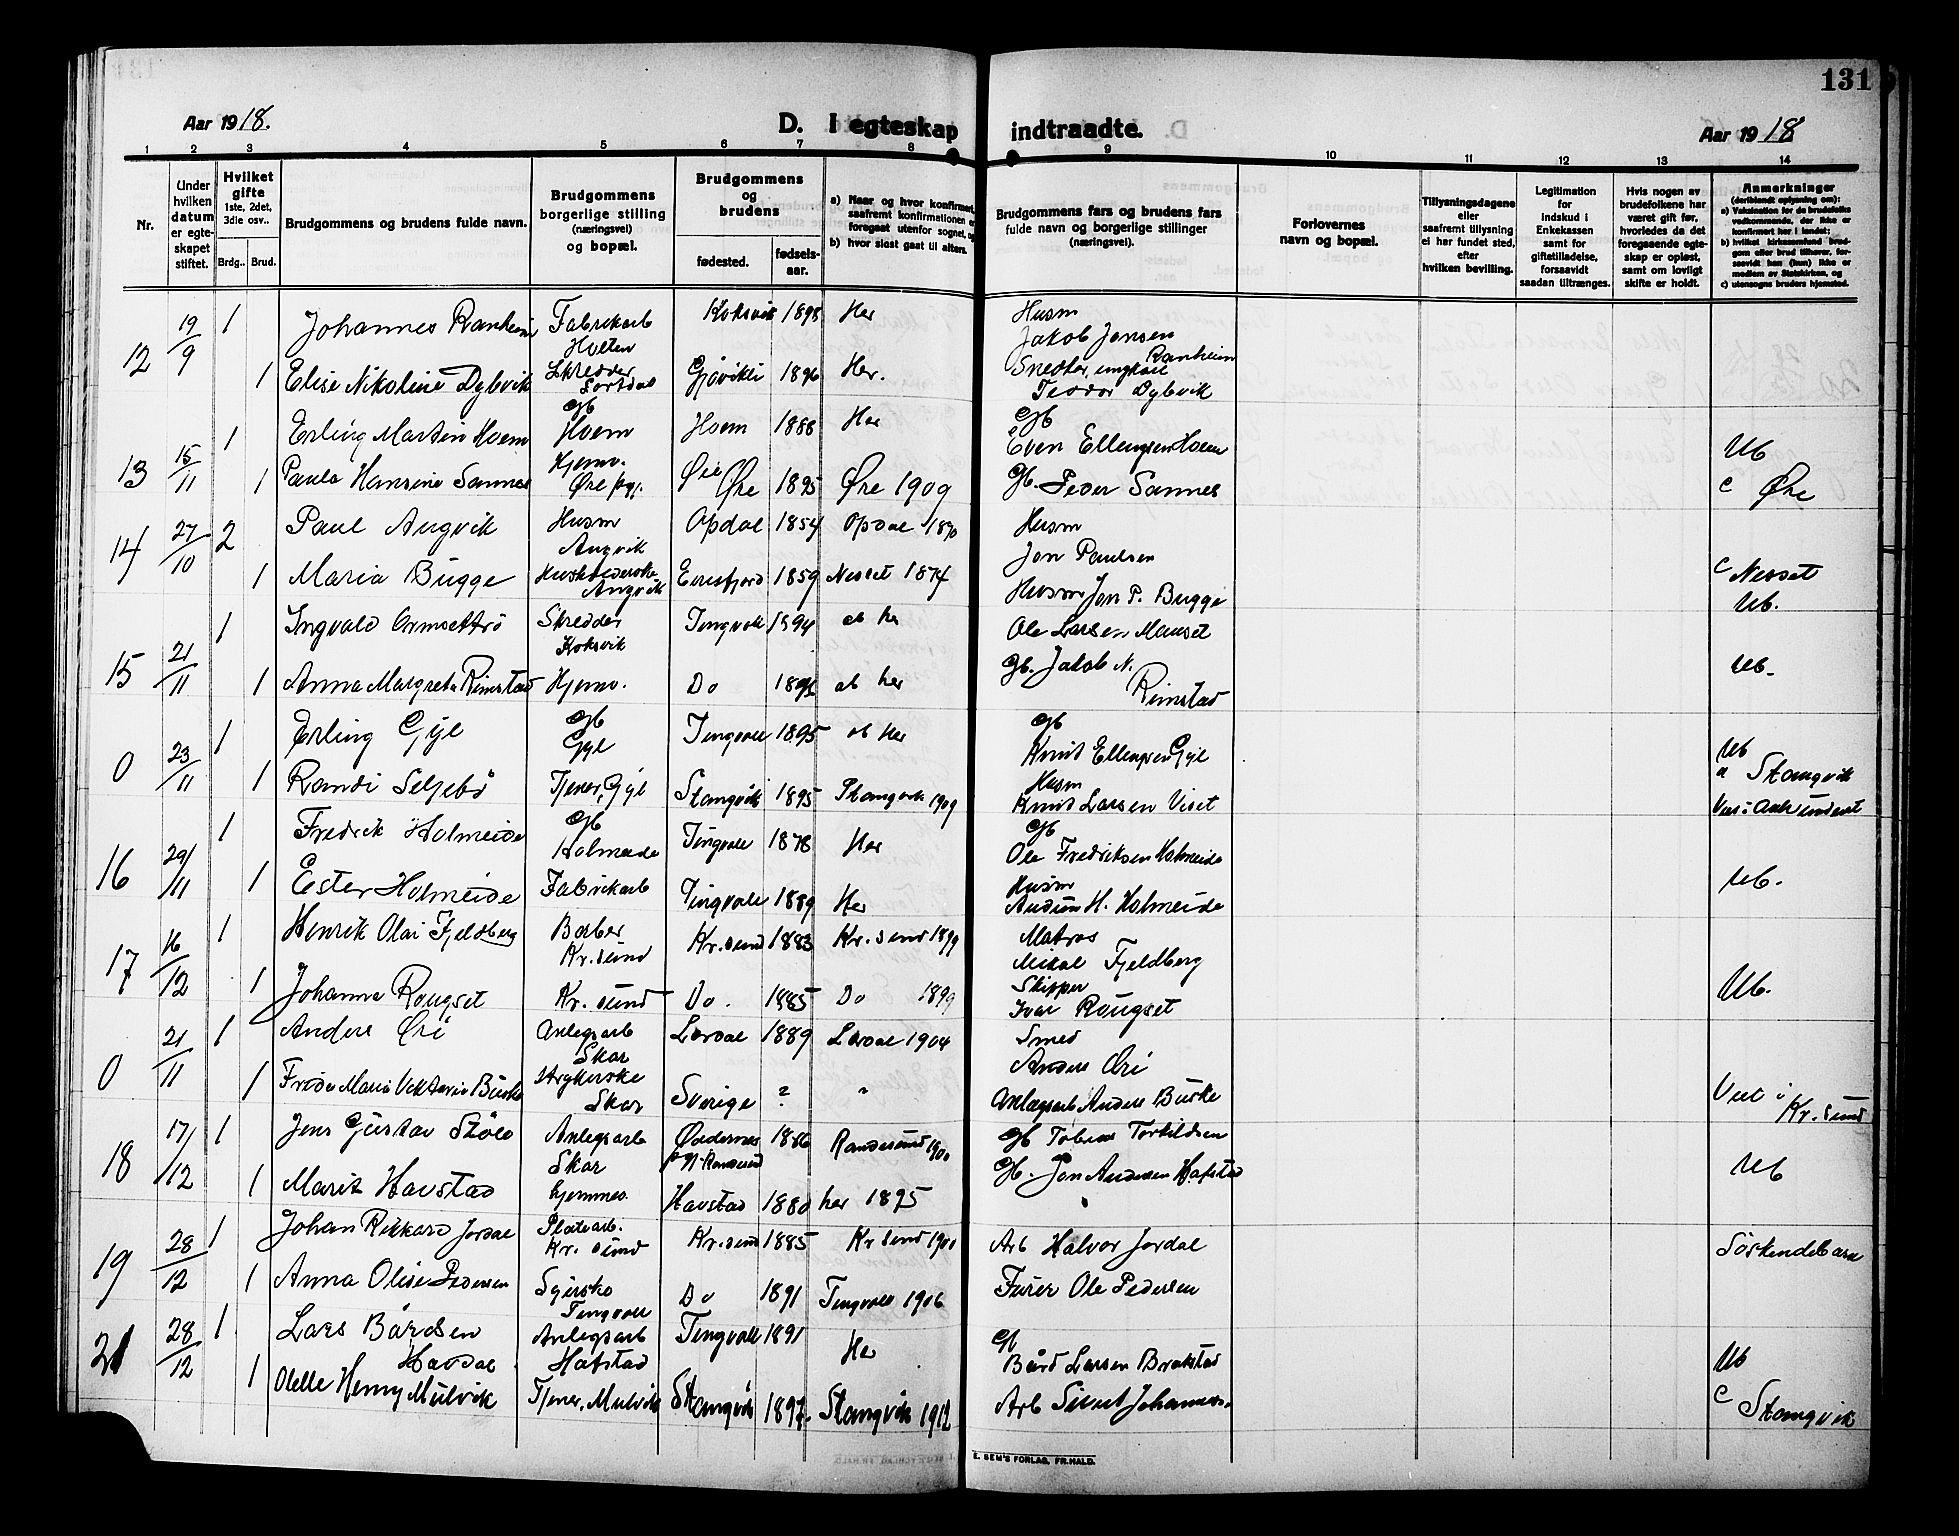 131
Aar 1918.
D. I egteskap indtraadte.
Aar 1918
1 2 3 4 5 6 7 8 9 10 11 12 13 14
Nr.
Under hvilken datum er egte-skapet stiftet.
Hvilket gifte 1ste, 2det, 3die osv..
Brdg.. Brud.
Brudgommens og brudens fulde navn.
Brudgommens borgerlige stilling (næringsvei) og bopæl.
Brudgommens og brudens
fødested. fødsels-aar.
a) Naar og hvor konfirmert, saafremt konfirmationen er foregaat utenfor sognet, og
b) hvor sidst gaat til alters.
Brudgommens fars og brudens fars fulde navn og borgerlige stillinger (næringsvei).
Forlovernes navn og bopæl.
Tillysningsdagene eller saafremt tillysning ei har fundet sted, efter hvilken bevilling.
Legitimation for Indskud i Enkekassen samt for giftetilladelse, forsaavidt saadan tiltrænges.
Hvis nogen av brudefolkene har været gift før, hvorledes da det foregaaende egte-skap er opløst, samt om lovligt skifte er holdt.
Anmerkninger (deriblandt oplysning om):
a) Vaksination for de brudefolks vedkommende, der ikke er konfirmert her i landet;
b) hvilket kirkesamfund brud-gom eller brud tilhører, for-saavidt han (hun) ikke er medlem av Statskirken, og
c) utensogns bruders hjemsted.
12 19/9 1 Johannes Ranheim Fabrikarb Holten Koksvik 1898 Her Husm Jakob Jonsen Ranheim
1 Elise Nikoline Dybvik Skredder Sortdal Gjøvikli 1896 Her. Snedker, ungkarl Teodor Dybvik
13 15/11 1 Erling Martin Hoem Gb Hoem Hoem 1888 Her Gb Even Ellingsen Hoem Ub
1 Paula Hansine Sannes Hjemv. Øre pgj. Øre 1895 Øre 1909 Gb. Peder Sannes c Øre
14 27/10 2 Paul Angvik Husm Angvik Opdal 1854 Opdal 1870 Husm Jon Paulsen
1 Maria Bugge Husholderske Angvik Eirisfjord 1859 Nesset 1874 Husm Jon P. Bugge c Nesset Ub.
15 21/11 1 Ingvald Ormsettrø Skredder Koksvik Tingvoll 1894 ab her Ole Larsen Mauset
1 Anna Margreta Rimstad Hjemv. Do ab her Gb. Jakob N. Rimstad Ub.
0 23/11 1 Erling Gyl Gb Gyl Tingvoll 1895 ab her Gb Knut Ellingsen Gyl Ub
1 Randi Seljebø Tjener, Gyl Stangvik 1895 Stangvik 1909 Husm Knut Larsen Viset a Stangvik
16 29/11 1 Fredrik Holmeide Gb Holmeide Tingvoll 1878 Her Gb Ole Fredriksen Holmeide
1 Ester Holmeide Fabrikarb Tingvoll 1889 Her Husm Audun H. Holmeide Ub.
17 16/12 1 Henrik Olai Fjeldberg Barber Kr.sund Kr.sund 1883 Kr.sund 1899 Matros Mikal Fjeldberg
1 Johanna Rougset Kr.sund Do. 1885 Do 1899 Skipper Ivar Rougset Ub.
0 21/11 1 Anders Øri Anlegsarb Skar Lærdal 1889 Lærdal 1904 Smed Anders Øri
1 Frida Maria Viktoria Burke Strykerske Skar Sverige ? " Anlægsarb Anders Burke Viet i Kr.sund
18 17/12 1 Jens Gustav Støle Anlegsarb Skar 1886 Randesund 1900 Gb Tobias Torkildsen
1 Marit Havstad hjemmev. Havstad 1880 her 1895 Gb. Jon Andersen Hafstad Ub
19 28/12 1 Johan Rikkard Jordal Platearb. Kr.sund Kr.sund 1885 Kr sund 1900 Arb Halvor Jordal Søskendebarn
1 Anna Olise Pedersen Syerske Tingvoll Do 1891 Tingvoll 1906 Furer Ole Pedersen
21 28/12 1 Lars Bårdsen Havdal Anlegsarb Hafstad Tingvoll 1891 Her Gb Bård Larsen Brakstad Ub
1 Olelle Henny Mulvik Tjener, Mulvik Stangvik 1897. Stangvik 1912 Arb Sivert Johannes. c Stangvik
E. SEM'S FORLAG, FR.HALD.